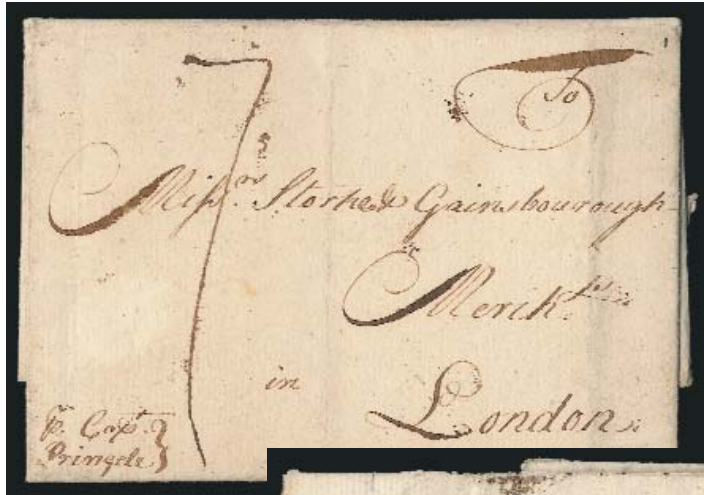 To
7
Miss.rs Storke & Gainsbourough
Merch.ts
in
London.
p. Cap.t
Pringele